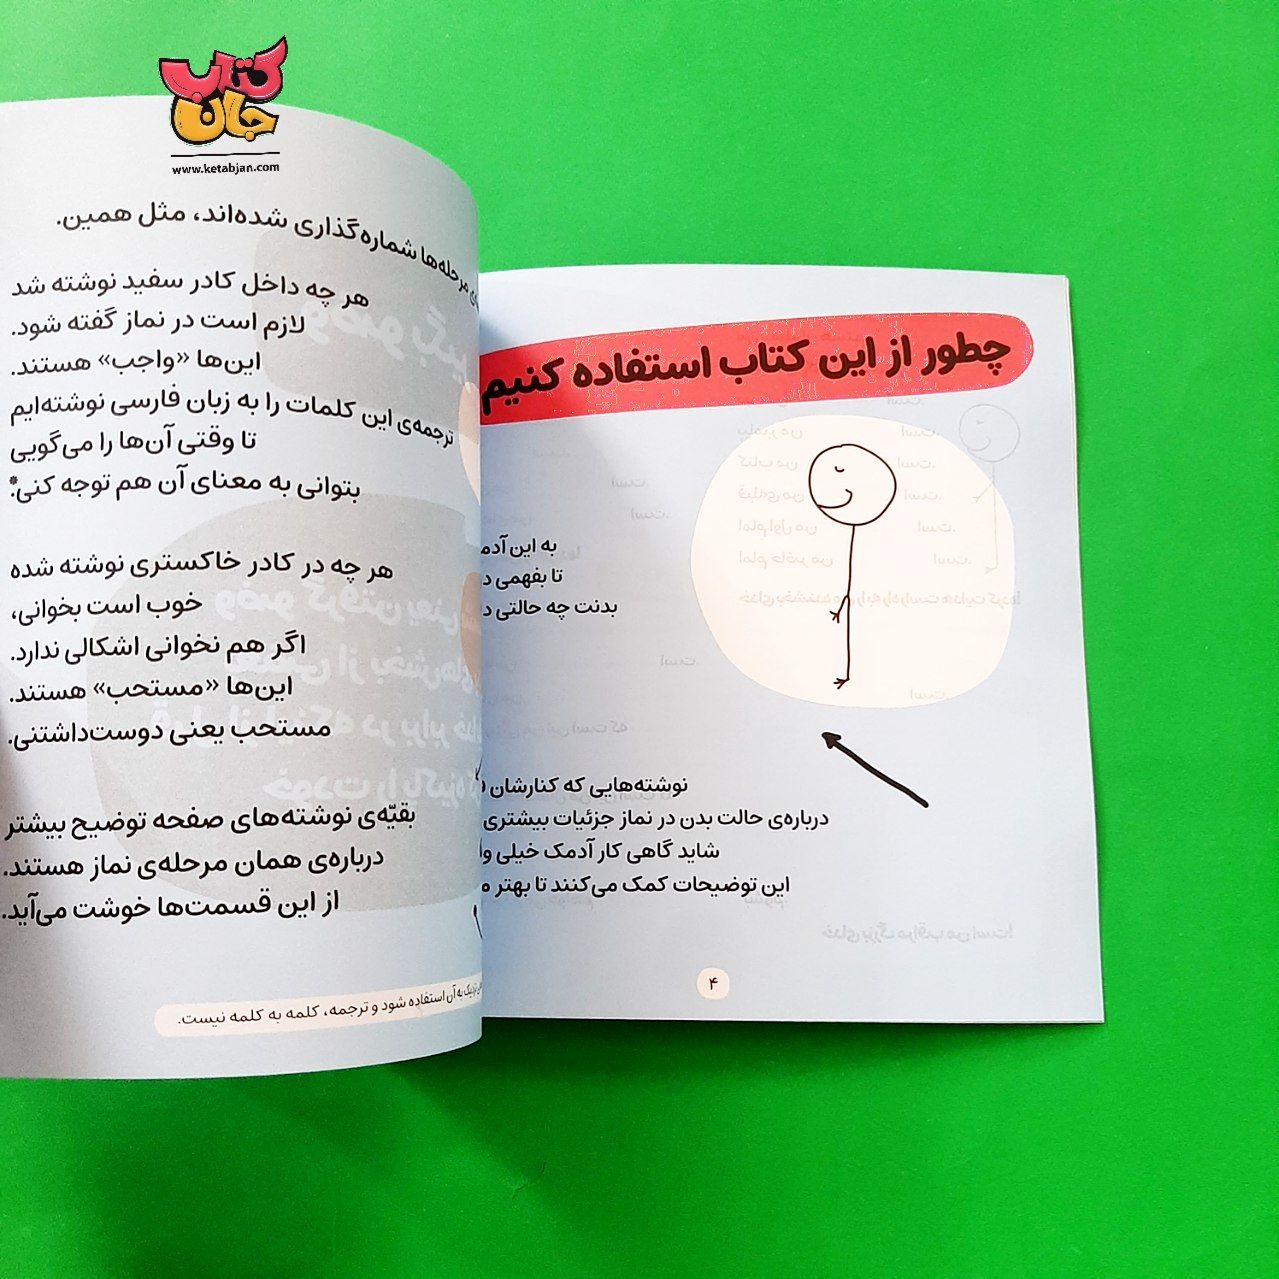 کتاب
جان
www.ketabjan.com
چطور از این کتاب استفاده کنیم
به این آدم
تا بفهمی
بدنت چه حالتی
نوشته‌هایی که کنارشان
درباره‌ی حالت بدن در نماز جزئیات بیشتری
شاید گاهی کار آدمک خیلی
این توضیحات کمک می‌کنند تا بهتر
۴
مرحله‌ها شماره‌گذاری شده‌اند، مثل همین.
هر چه داخل کادر سفید نوشته شد
لازم است در نماز گفته شود.
این‌ها «واجب» هستند.
ترجمه‌ی این کلمات را به زبان فارسی نوشته‌ایم
تا وقتی آن‌ها را می‌گویی
بتوانی به معنای آن هم توجه کنی.*
هر چه در کادر خاکستری نوشته شده
خوب است بخوانی،
اگر هم نخوانی اشکالی ندارد.
این‌ها «مستحب» هستند.
مستحب یعنی دوست‌داشتنی.
بقیّه‌ی نوشته‌های صفحه توضیح بیشتر
درباره‌ی همان مرحله‌ی نماز هستند.
از این قسمت‌ها خوشت می‌آید.
به آن استفاده شود و ترجمه، کلمه به کلمه نیست.